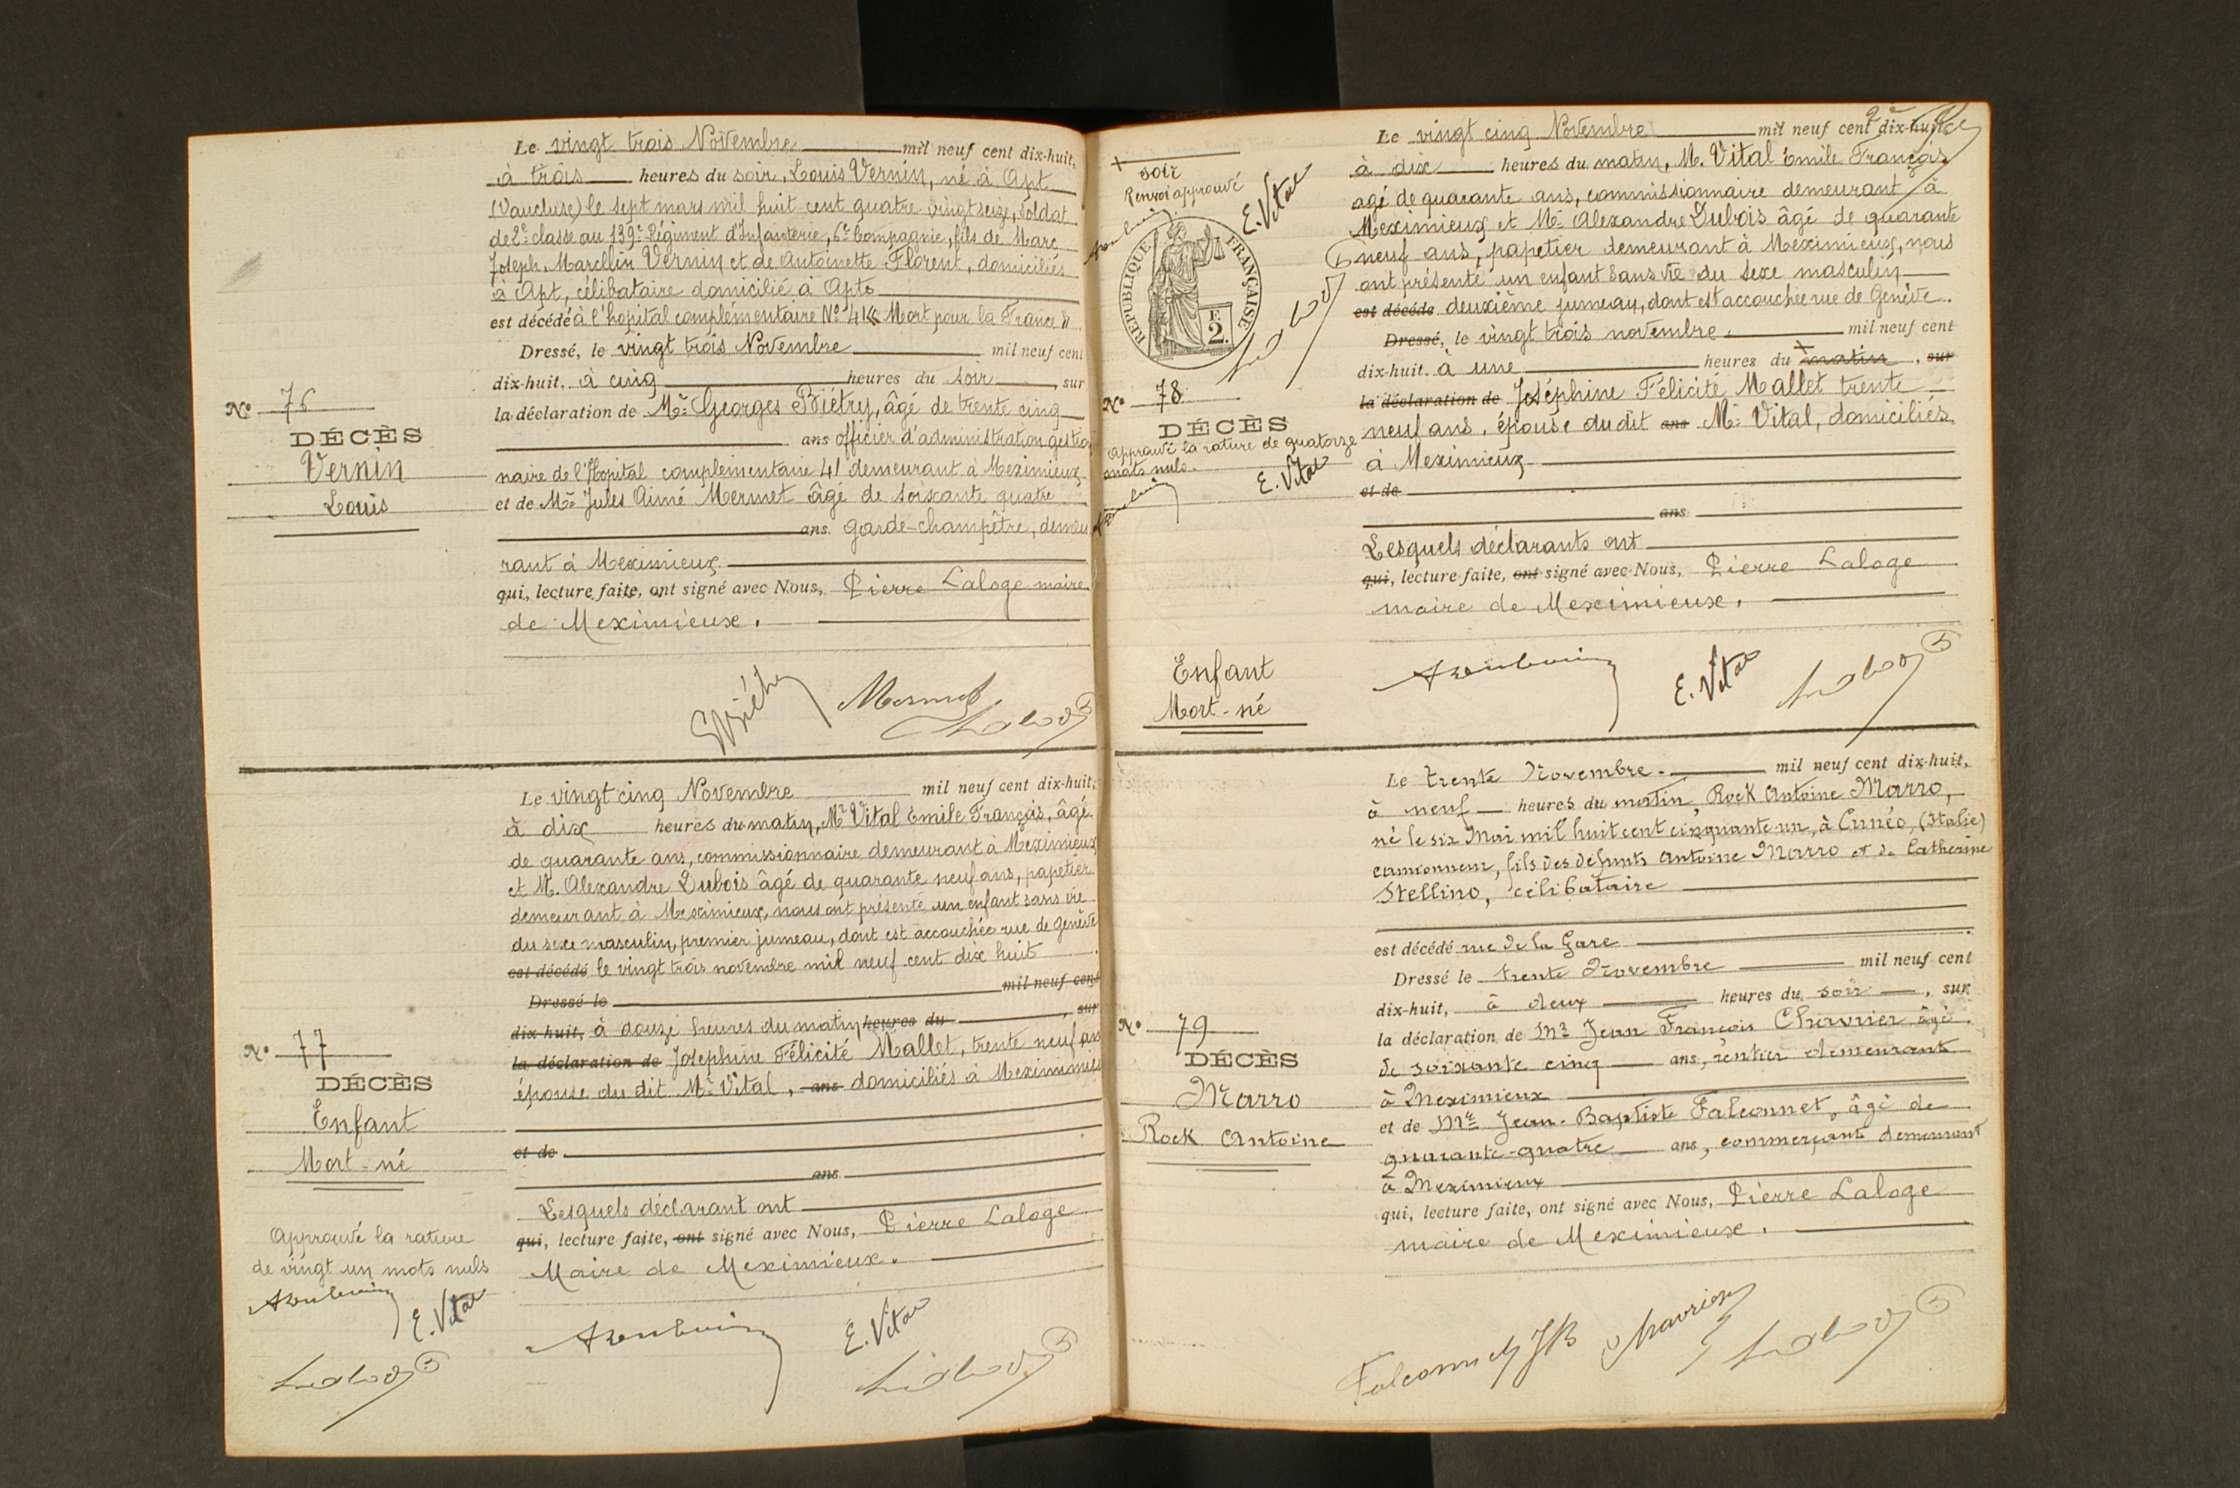 Le vingt trois Novembre mil neuf cent dix-huit,
à trois heures du soir, Louis Vernin, né à Apt
(Vaucluse) le sept mars mil huit cent quatre vingt seize, soldat
de 2e classe au 139e Régiment d'Infanterie, 6e Compagnie, fils de Marc
Joseph Marcellin Vernin et de Antoinette Florent, domiciliés
à Apt, célibataire domicilié à Apt
est décédé à l'hopital complémentaire No 41 « Mort pour la France »
Dressé, le vingt trois Novembre mil neuf cent
dix-huit, à cinq heures du soir, sur
la déclaration de Mr Georges Biétry, âgé de trente cinq
ans officier d'administration gestion
naire de l'Hopital complémentaire 41 demeurant à Meximieux
et de Mr Jules Aimé Mermet âgé de soixante quatre
ans garde-champêtre, demeu
rant à Meximieux
qui, lecture faite, ont signé avec Nous, Pierre Laloge maire
de Meximieux.
No 76
DÉCÈS
Vernin
Louis
GBiétry Mermet
Le vingt cinq Novembre mil neuf cent dix-huit,
à dix heures du matin, Mr Vital Emile François, âgé
de quarante ans, commissionnaire demeurant à Meximieux
et M. Alexandre Dubois âgé de quarante neuf ans, papetier
demeurant à Meximieux, nous ont présenté un enfant sans vie
du sexe masculin, premier jumeau, dont est accouchée rue de Genève
est décédé le vingt trois novembre mil neuf cent dix huit
Dressé le mil neuf cent
dix-huit, à douze heures du matin heures du , sur
la déclaration de Joséphine Félicité Mallet, trente neuf ans
épouse du dit Mr Vital, ans domiciliés à Meximieux
et de
ans
Lesquels déclarant ont
qui, lecture faite, ont signé avec Nous, Pierre Laloge
Maire de Meximieux.
No 77
DÉCÈS
Enfant
Mort-né
Approuvé la rature
de vingt un mots nuls
E. Vital
E. Vital
2e
Le vingt cinq Novembre mil neuf cent dix-huit
à dix heures du matin, M. Vital Emile François
agé de quarante ans, commissionnaire demeurant à
Meximieux et Mr Alexandre Dubois âgé de quarante
neuf ans, papetier demeurant à Meximieux, nous
ont présenté un enfant sans vie du sexe masculin
est décédé deuxième jumeau, dont est accouchée rue de Genève.
Dressé, le vingt trois novembre mil neuf cent
dix-huit à une heures du matin, sur
la déclaration de Joséphine Félicité Mallet trente
neuf ans, épouse du dit ans Mr Vital, domiciliés
à Meximieux
et de
ans
Lesquels déclarants ont
qui, lecture faite, ont signé avec Nous, Pierre Laloge
maire de Meximieux.
soir
Renvoi approuvé
E. Vital
RÉPUBLIQUE FRANÇAISE
E
2.
No 78
DÉCÈS
Approuvé la rature de quatorze
mots nuls.
E. Vital
Enfant
Mort-né
E. Vital
Le trente Novembre mil neuf cent dix-huit,
à neuf heures du matin, Rock Antoine Marro,
né le six Mai mil huit cent cinquante un, à Cunéo, (Italie)
camionneur, fils des défunts Antoine Marro et de Catherine
Stellino, célibataire
est décédé rue de la Gare
Dressé le trente Novembre mil neuf cent
dix-huit, à deux heures du soir, sur
la déclaration de Mr Jean François Chavrier âgé
de soixante cinq ans, rentier demeurant
à Meximieux
et de Mr Jean-Baptiste Falconnet, âgé de
quarante-quatre ans, commerçant demeurant
à Meximieux
qui, lecture faite, ont signé avec Nous, Pierre Laloge
maire de Meximieux.
No 79
DÉCÈS
Marro
Rock Antoine
Falconnet JB Chavrier